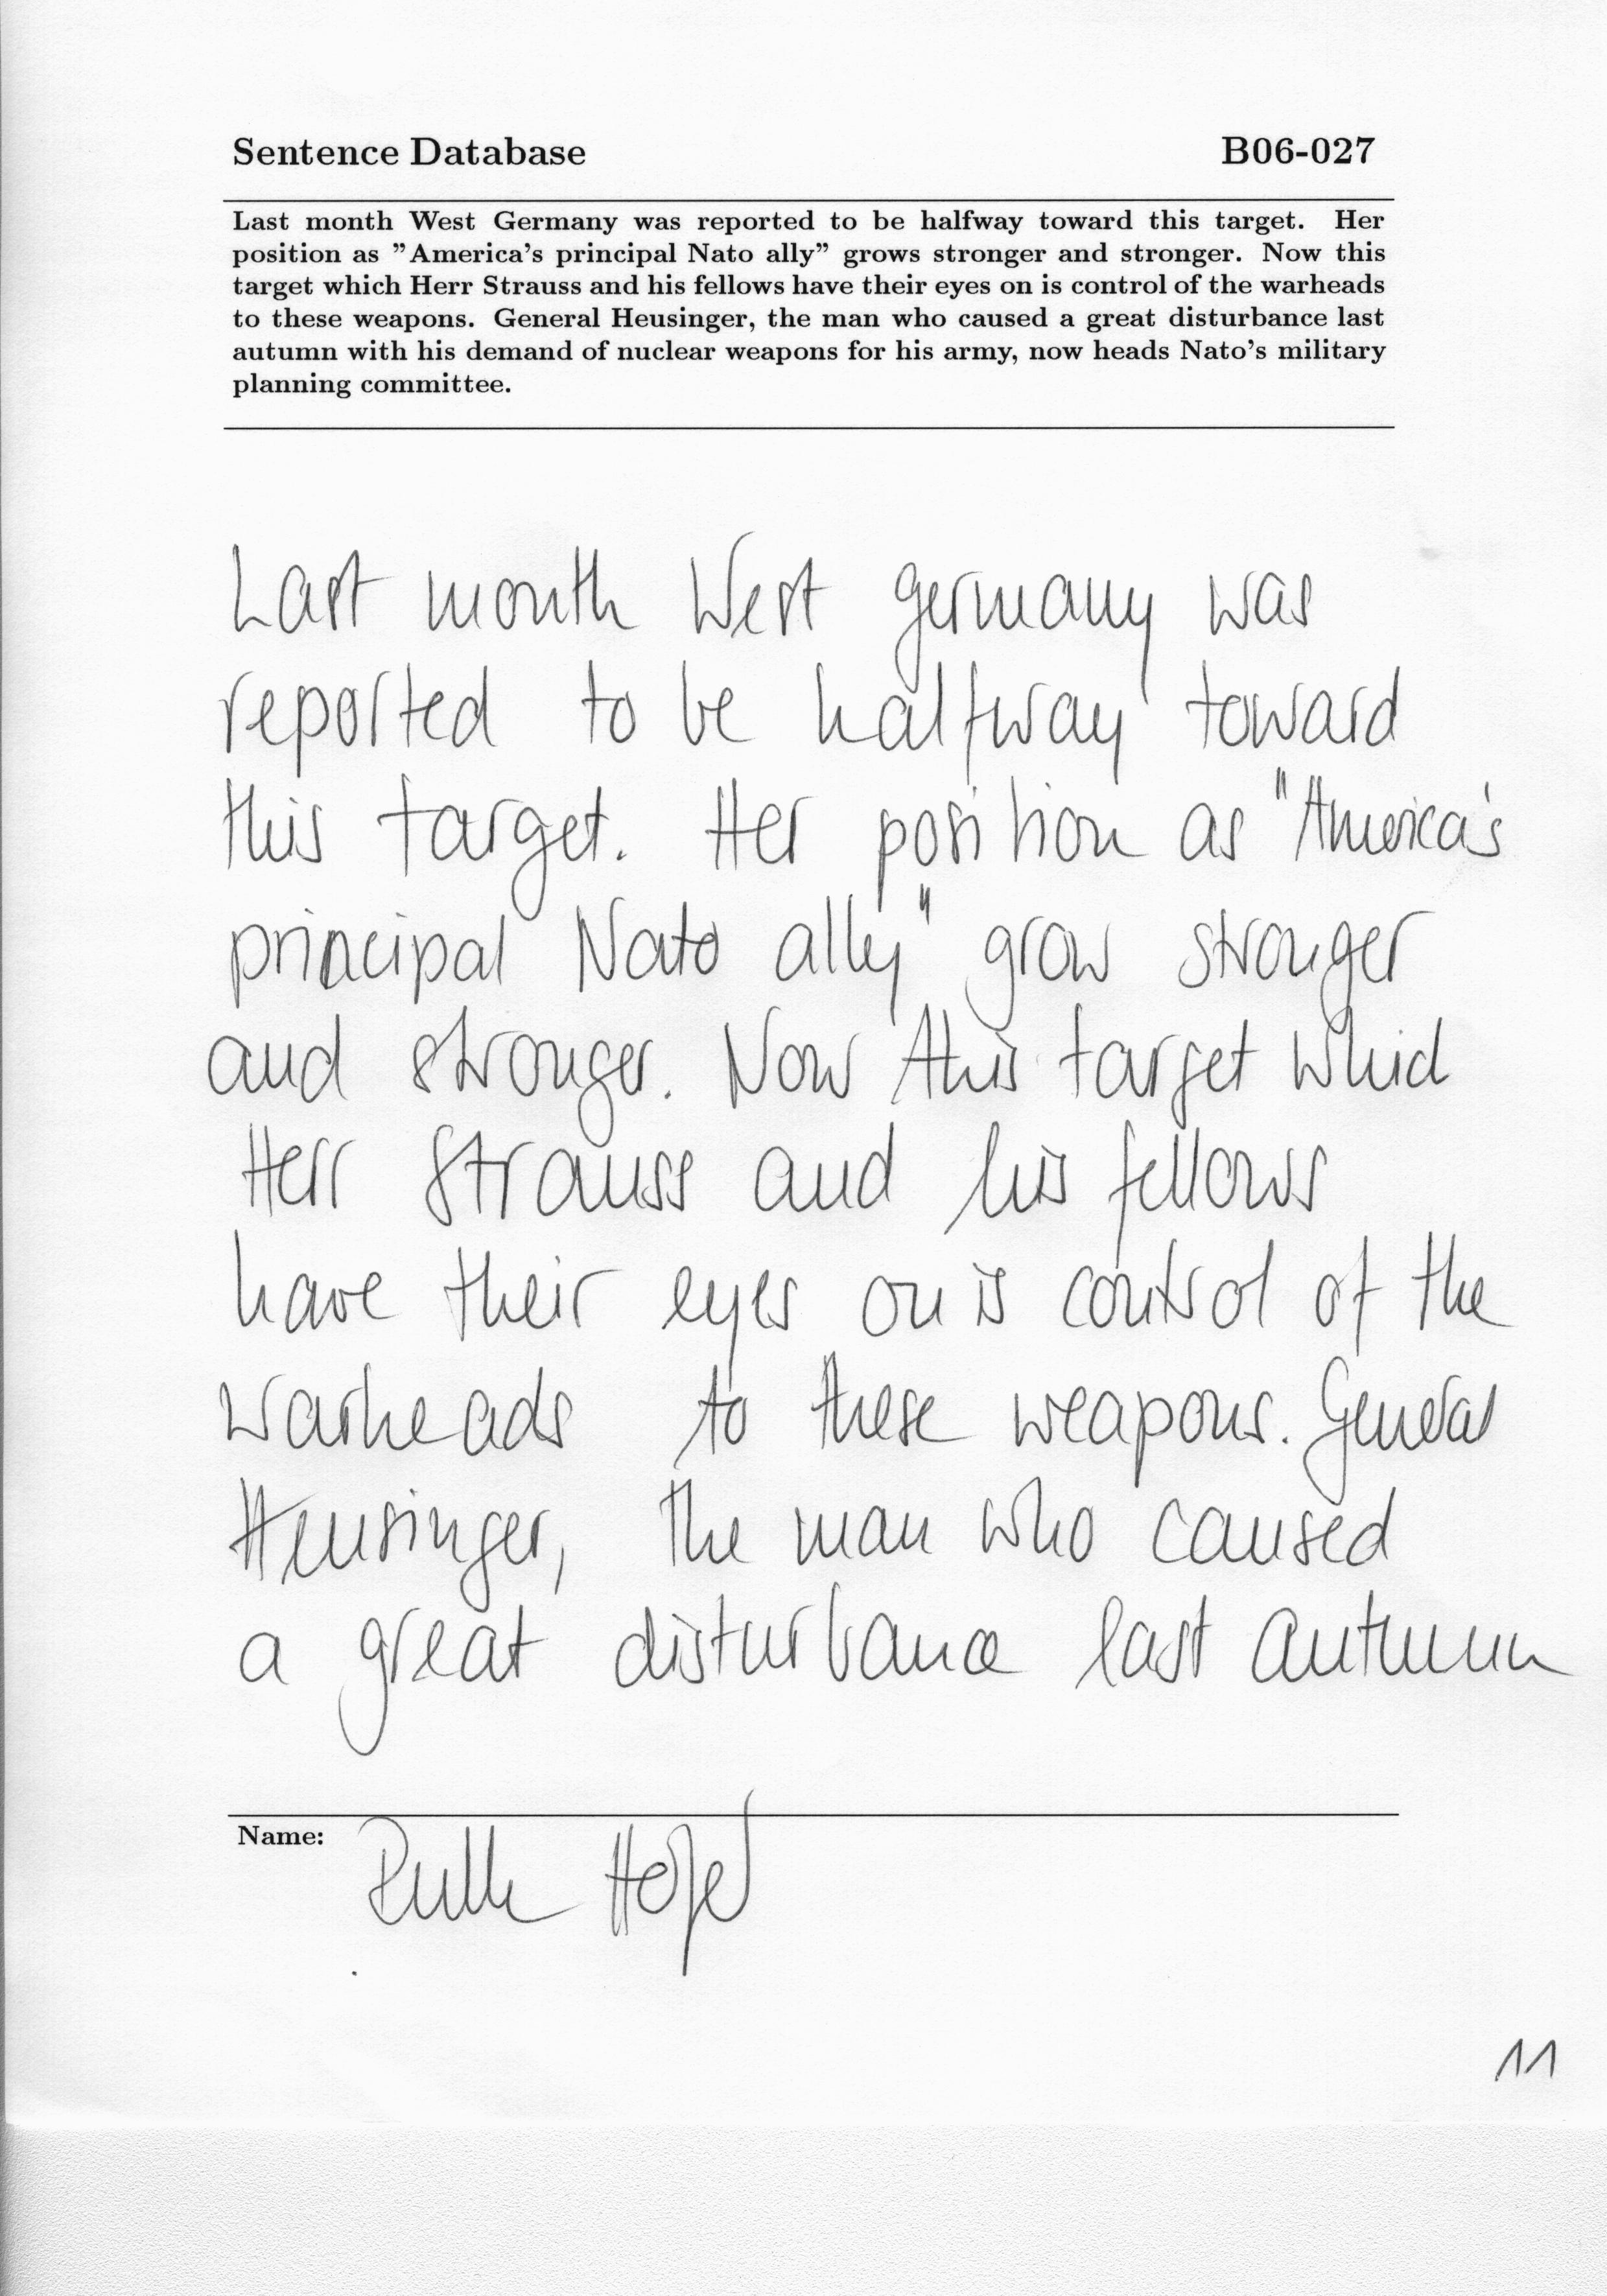 Sentence Database B06-027
Last month West Germany was reported to be halfway toward this target. Her
position as "America's principal Nato ally" grows stronger and stronger. Now this
target which Herr Strauss and his fellows have their eyes on is control of the warheads
to these weapons. General Heusinger, the man who caused a great disturbance last
autumn with his demand of nuclear weapons for his army, now heads Nato's military
planning committee.
Last month West Germany was
reported to be halfway toward
this target. Her position as "America's
principal Nato ally" grow stronger
and stronger. Now this target which
Herr Strauss and his fellows
have their eyes on is control of the
warheads to these weapons. General
Heusinger, the man who caused
a great disturbance last autumn
Name:
11